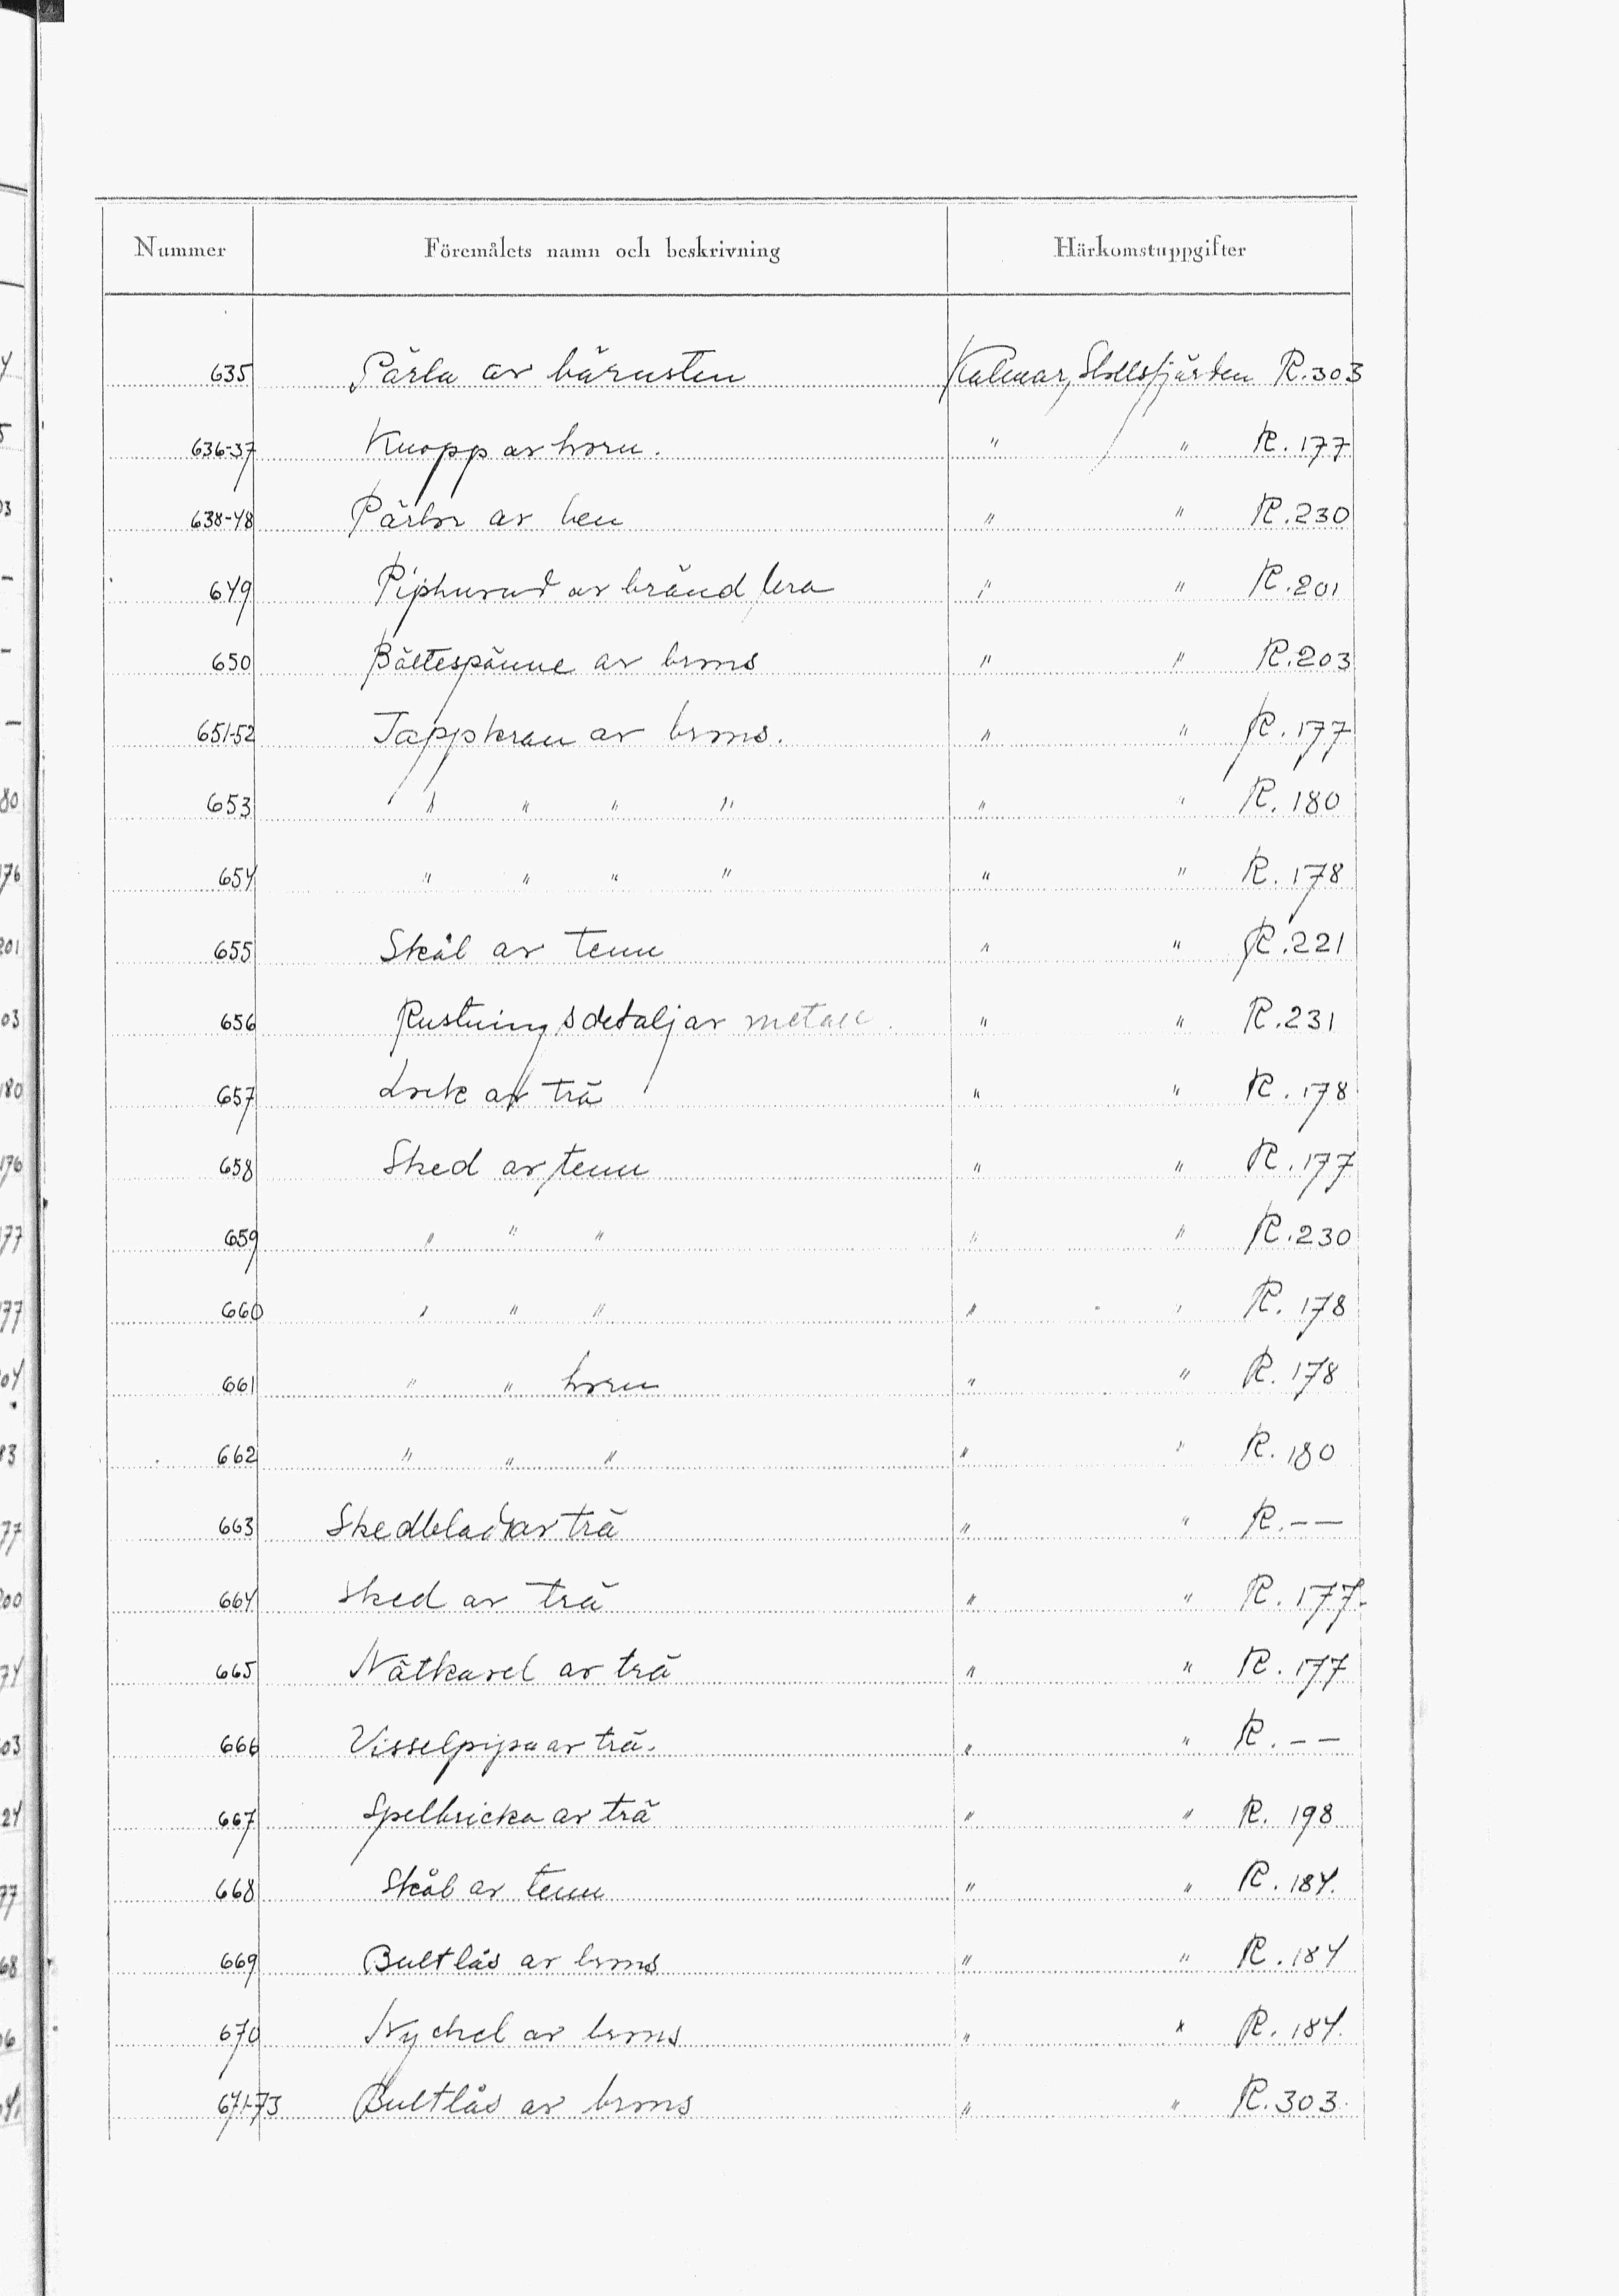 Nummer Föremålets namn och beskrivning Härkomstuppgifter
635 Pärla av bärnsten Kalmar, Slottsfjärden R.303
636-37 Knopp av horn. " " R.177
638-48 Pärlor av ben " " R.230
649 Piphuvud av bränd lera " " R.201
650 Bältespänne av brons " " R.203
651-52 Tappkran av brons. " " R.177
653 " " " " " " R.180
654 " " " " " " R.178
655 Skål av tenn " " R.221
656 Rustningsdetalj av metall. " " R.231
657 Lock av trä " " R.178
658 Sked av tenn " " R.177
659 " " " " " R.230
660 " " " " " R.178
661 " " horn " " R.178
662 " " " " " R.180
663 Skedblad av trä " " R.--
664 Sked av trä " " R.177.
665 Nätkavel av trä " " R.177
666 Visselpipa av trä. " " R.--
667 Spelbricka av trä " " R.198
668 Skål av tenn " " R.184.
669 Bultlås av brons " " R.184
670 Nyckel av brons " " R.184.
671-73 Bultlås av brons " " R.303.